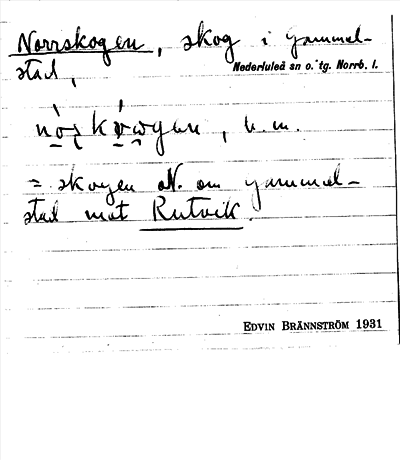 Norrskogen, skog i Gammel-
stad,
Nederluleå sn o. tg. Norrb. l.
= skogen N. om Gammel-
stad mot Rutvik.
EDVIN BRÄNNSTRÖM 1931